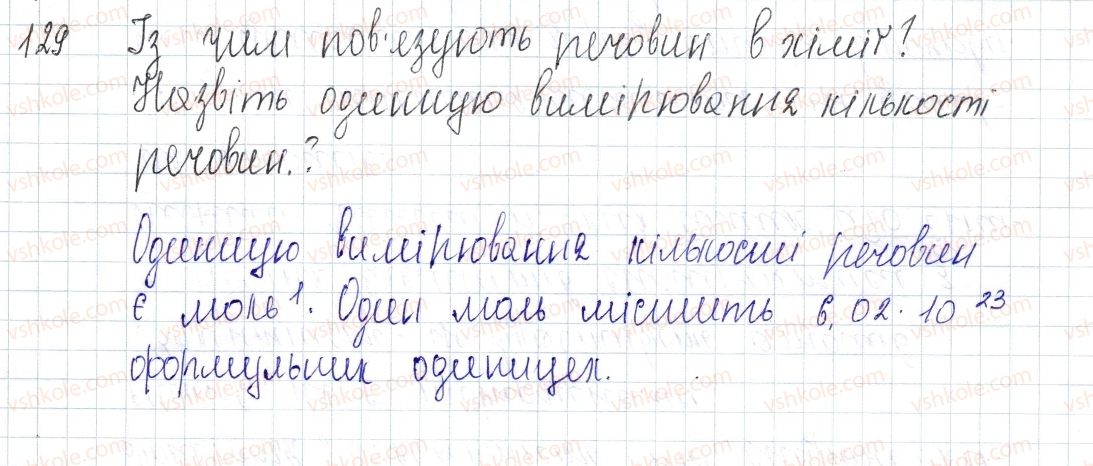 129 Із чим пов'язують речовин в хімії?
Назвіть одиницю вимірювання кількості
речовин.?
Одиницю вимірювання кількості речовин
є моль¹. Один моль містить 6,02·10²³
формульних одиницех.